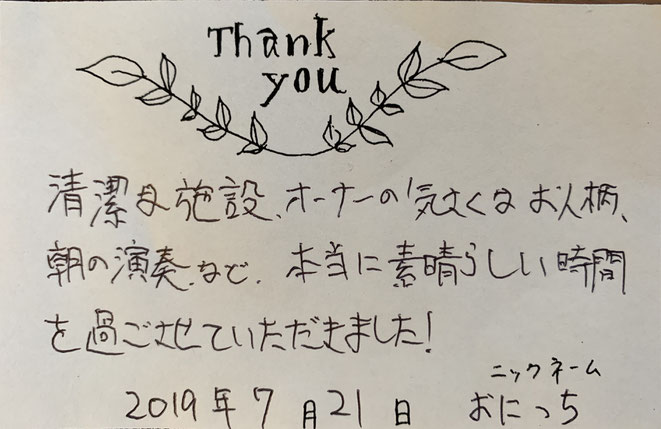 Thank
you
清潔な施設、オーナーの気さくなお人柄、
朝の演奏、など、本当に素晴らしい時間
を過ごさせていただきました!
ニックネーム
2019年7月21日 おにっち